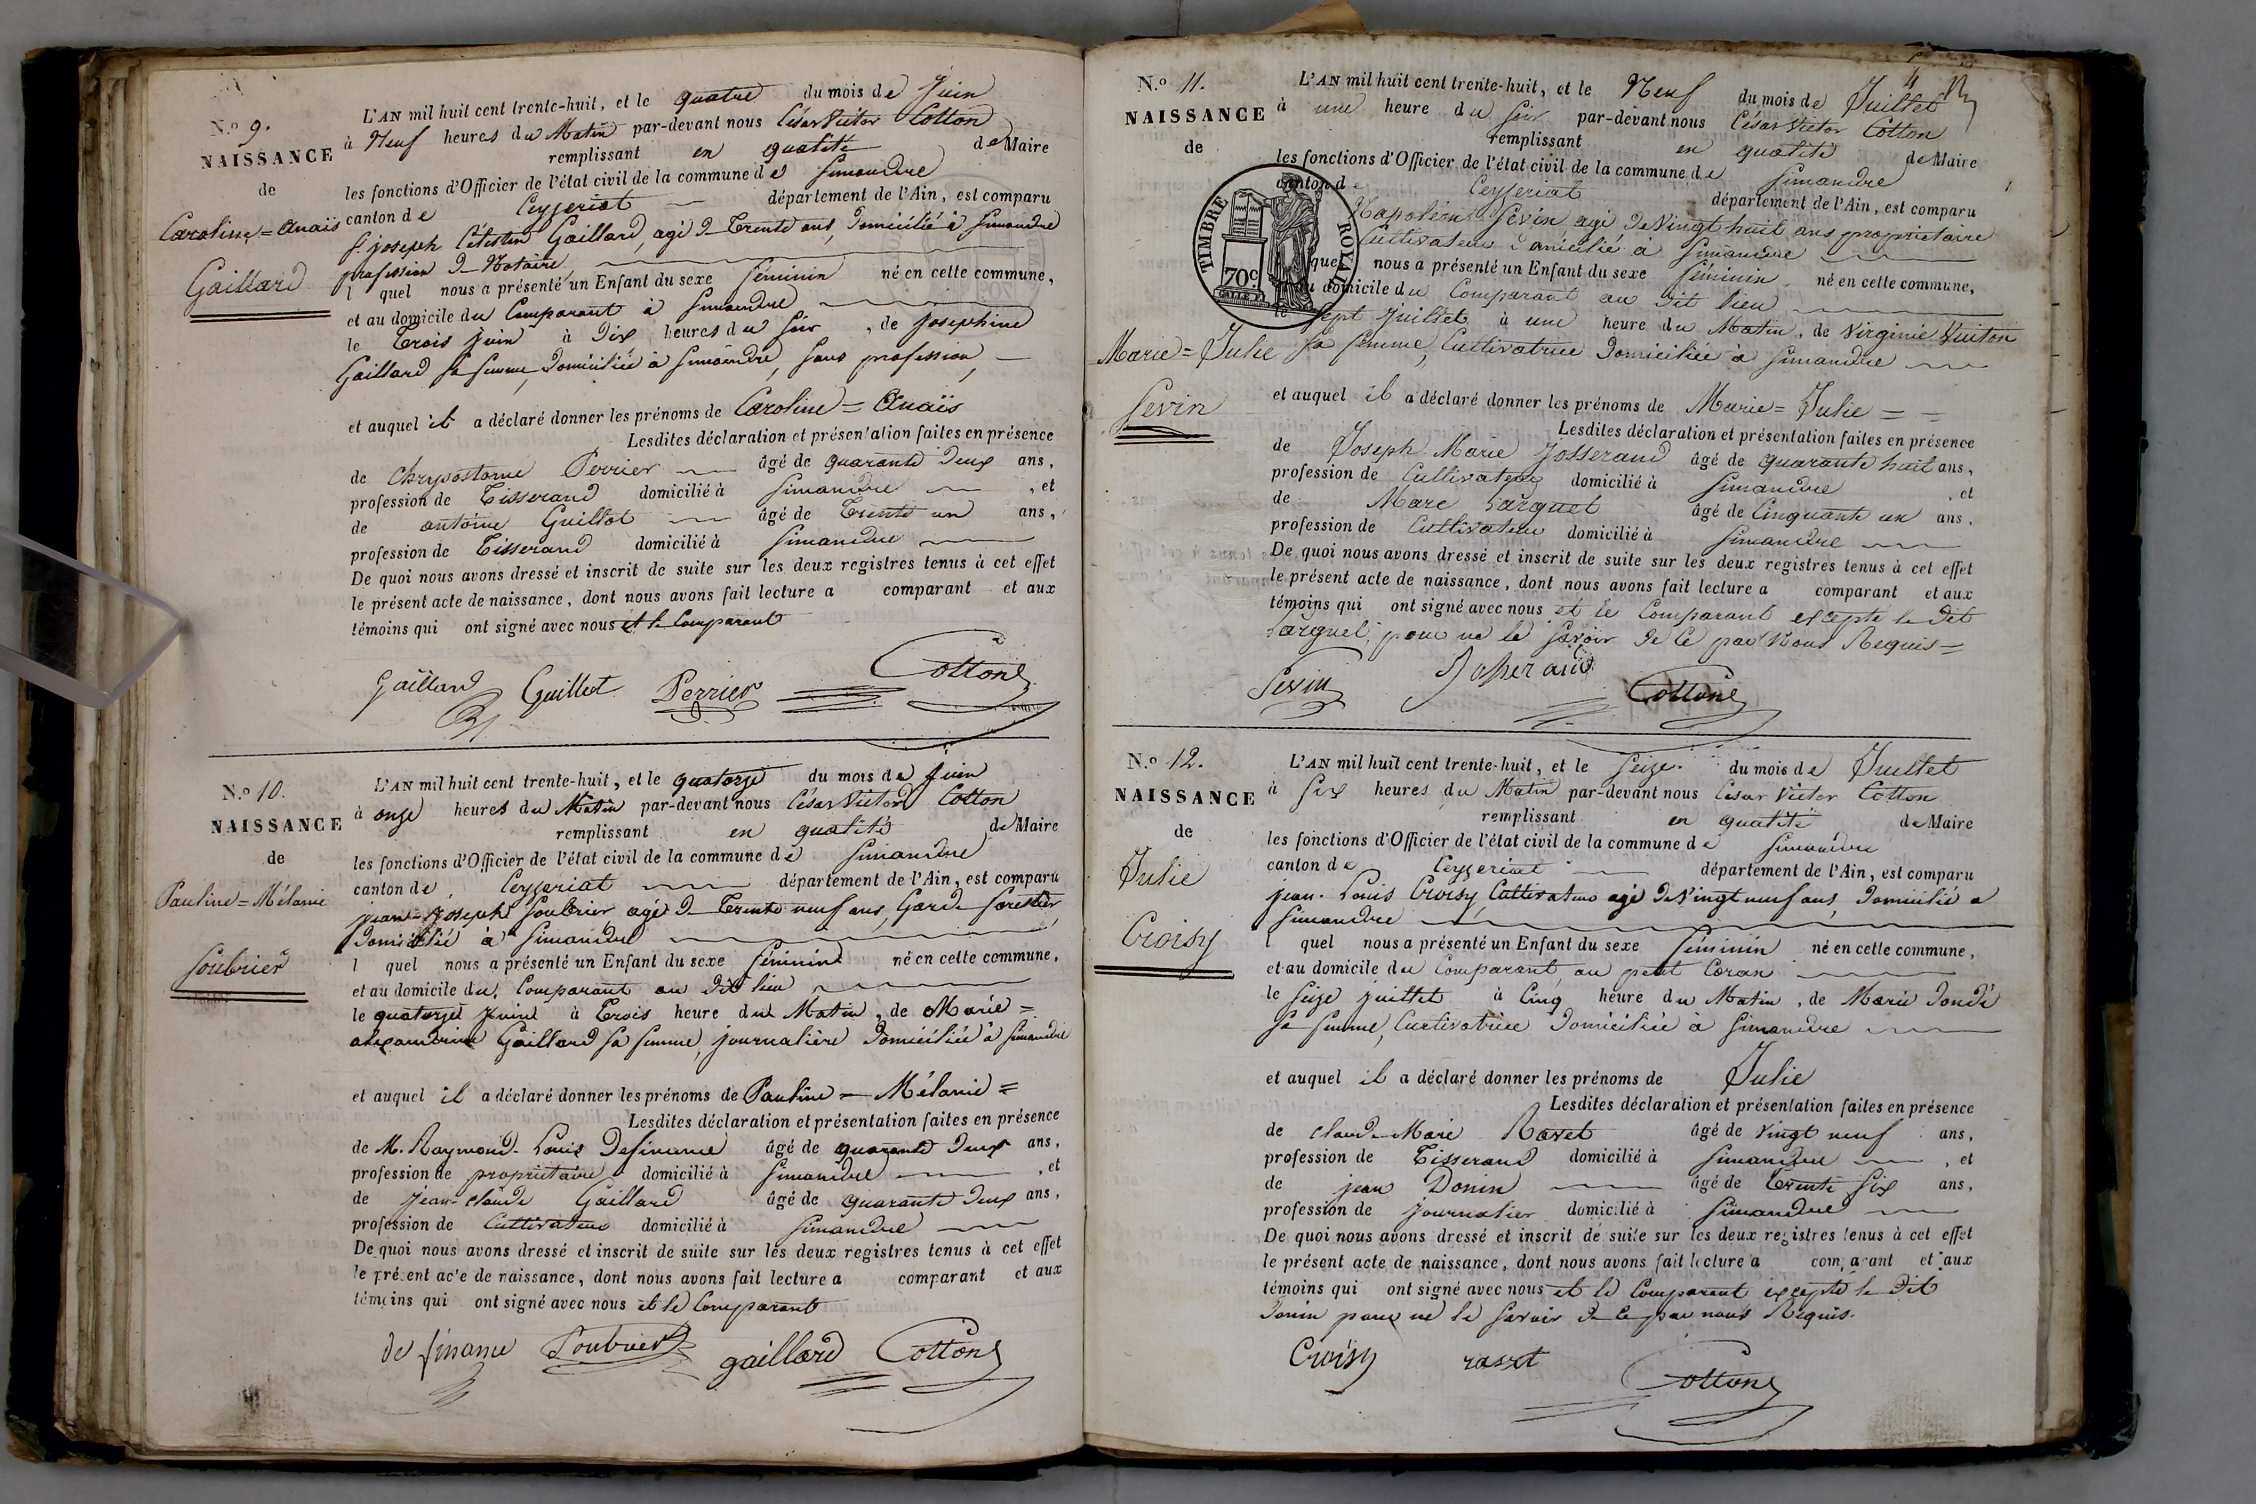 N.º 9.
NAISSANCE
de
Caroline = Anaïs
Gaillard
L'AN mil huit cent trente-huit, et le quatre du mois de Juin
à Neuf heures du Matin par-devant nous César Victor Cotton
remplissant en qualité de Maire
les fonctions d'Officier de l'état civil de la commune de Simandre
canton de Ceyzeriat département de l'Ain, est comparu
S. joseph Célestin Gaillard, agé de Trente ans, Domicilié à Simandre
profession de Notaire
l quel nous a présenté un Enfant du sexe féminin né en cette commune,
et au domicile du Comparant à Simandre
le Trois juin à Dix heures du soir, de josephine
Gaillard sa femme, Domiciliée à Simandre, sans profession,
et auquel il a déclaré donner les prénoms de Caroline = Anaïs
Lesdites déclaration et présentation faites en présence
de chrysostome Perrier âgé de quarante Deux ans,
profession de Tisserand domicilié à Simandre, et
de antoine Guillot âgé de Trente un ans,
profession de Tisserand domicilié à Simandre
De quoi nous avons dressé et inscrit de suite sur les deux registres tenus à cet effet
le présent acte de naissance, dont nous avons fait lecture a comparant et aux
témoins qui ont signé avec nous et le Comparant
Gaillard Guillot Perrier Cotton
N.º 10.
NAISSANCE
de
Pauline = Mélanie
Soubrier
L'AN mil huit cent trente-huit, et le quatorze du mois de juin
à onze heures du Matin par-devant nous César Victor Cotton
remplissant en qualité de Maire
les fonctions d'Officier de l'état civil de la commune de Simandre
canton de Ceyzeriat département de l'Ain, est comparu
jean-Joseph Soubrier agé de Trente neuf ans, Garde forestier
Domicilié à Simandre
l quel nous a présenté un Enfant du sexe féminin né en cette commune,
et au domicile du Comparant au Dit lieu
le quatorze juin à Trois heure du Matin, de Marie =
alexandrine Gaillard sa femme, journalière Domiciliée à Simandre
et auquel il a déclaré donner les prénoms de Pauline = Mélanie =
Lesdites déclaration et présentation faites en présence
de M. Raymond-Louis Definance âgé de quarante Deux ans,
profession de propriétaire domicilié à Simandre, et
de Jean-claude Gaillard âgé de quarante Deux ans,
profession de Cultivateur domicilié à Simandre
De quoi nous avons dressé et inscrit de suite sur les deux registres tenus à cet effet
le présent acte de naissance, dont nous avons fait lecture a comparant et aux
témoins qui ont signé avec nous et le Comparant
de finance Soubrier gaillard Cotton
4
N.º 11.
NAISSANCE
de
TIMBRE ROYAL
70c
Marie = Julie
Sevin
L'AN mil huit cent trente-huit, et le Neuf du mois de Juillet
à une heure du soir par-devant nous César Victor Cotton
remplissant en qualité de Maire
les fonctions d'Officier de l'état civil de la commune de Simandre
canton de Ceyzeriat département de l'Ain, est comparu
Napoléon Sevin, agé de Vingt huit ans propriétaire
Cultivateur Domicilié à Simandre
quel nous a présenté un Enfant du sexe féminin né en cette commune,
au domicile du Comparant au Dit lieu
le Sept Juillet à une heure du Matin, de Virginie Vuiton
sa femme, Cultivatrice Domiciliée à Simandre
et auquel il a déclaré donner les prénoms de Marie = Julie =
Lesdites déclaration et présentation faites en présence
de Joseph Marie Josserand âgé de quarante huit ans,
profession de Cultivateur domicilié à Simandre, et
de Marc Larguet âgé de Cinquante un ans,
profession de Cultivateur domicilié à Simandre
De quoi nous avons dressé et inscrit de suite sur les deux registres tenus à cet effet
le présent acte de naissance, dont nous avons fait lecture a comparant et aux
témoins qui ont signé avec nous et le Comparant excepté le Dit
Larguet, pour ne le savoir De Ce par Nous Requis =
Sevin Josserand Cotton
N.º 12.
NAISSANCE
de
Julie
Croisy
L'AN mil huit cent trente-huit, et le Seize du mois de Juillet
à Six heures du Matin par-devant nous César Victor Cotton
remplissant en qualité de Maire
les fonctions d'Officier de l'état civil de la commune de Simandre
canton de Ceyzeriat département de l'Ain, est comparu
jean-Louis Croisy, Cultivateur agé de Vingt neuf ans, Domicilié a
Simandre
l quel nous a présenté un Enfant du sexe féminin né en cette commune,
et au domicile du Comparant au petit Coran
le Seize juillet à Cinq heure du Matin, de Marie Dondé
sa femme, Cultivatrice Domiciliée à Simandre
et auquel il a déclaré donner les prénoms de Julie
Lesdites déclaration et présentation faites en présence
de claude-Marie Ravet âgé de Vingt neuf ans,
profession de Tisserand domicilié à Simandre, et
de jean Donin âgé de Trente Six ans,
profession de journalier domicilié à Simandre
De quoi nous avons dressé et inscrit de suite sur les deux registres tenus à cet effet
le présent acte de naissance, dont nous avons fait lecture a comparant et aux
témoins qui ont signé avec nous et le Comparant excepté le Dit
Donin pour ne le savoir de ce par nous Requis.
Croisy ravet Cotton